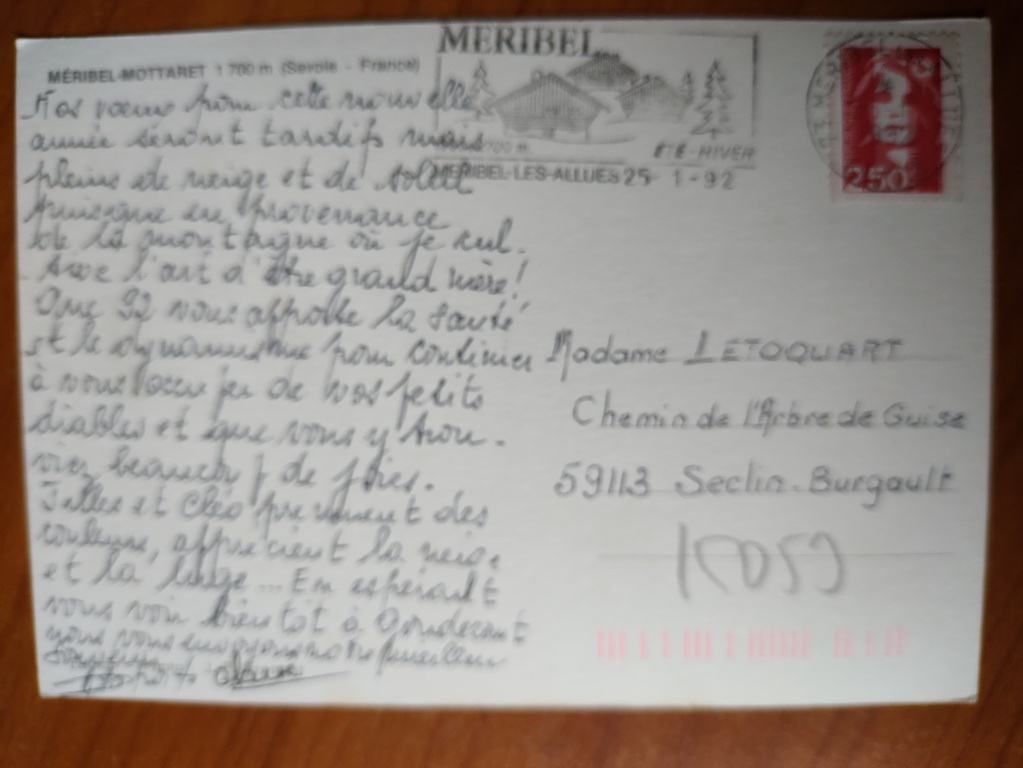 MERIBEL
MÉRIBEL-MOTTARET 1 700 m (Savoie - France)
ÉTÉ-HIVER
MERIBEL-LES-ALLUES 25 1-92
2,50
Nos voeux pour cette nouvelle
année seront tardifs mais
pleins de neige et de soleil
puisque en provenance
de la montagne où je cul-
tive l'art d'être grand mère !
Que 92 vous apporte la santé
et le dynamisme pour continuer
à vous occuper de vos petits
diables et que vous y trou-
viez beaucoup de joies.
et Cléo prennent des
couleurs, apprécient la neige
et la luge ... En espérant
vous voir bientôt à Gondecourt
nous vous envoyons notre meilleur
souvenir
Madame LETOQUART
Chemin de l'Arbre de Guise
59113 Seclin-Burgault